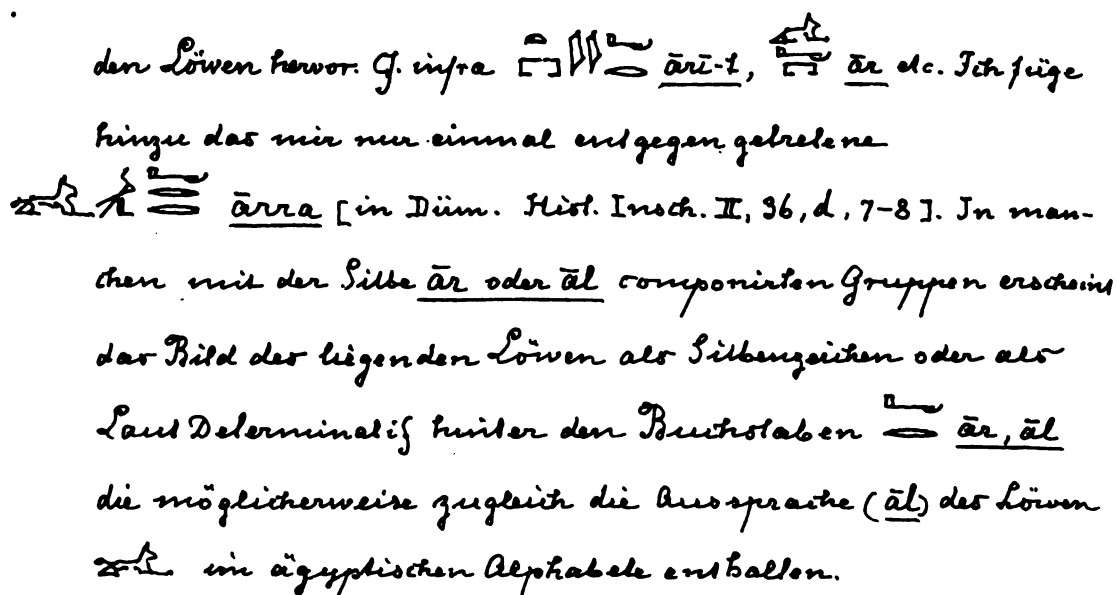 den Löwen hervor. Cf. infra 𓉐𓏏𓇌𓂝𓂋 ārī-t, 𓃭𓂝𓂋𓉐 ār etc. Ich füge
hinzu das mir nur einmal entgegen getretene
ārra [in Düm. Hist. Insch. II, 36, d, 7-8]. In man-
chen mit der Silbe ār oder āl componirten Gruppen erscheint
das Bild des liegenden Löwen als Silbenzeichen oder als
Laut Determinatif hinter den Buchstaben 𓂝𓂋 ār, āl
die möglicherweise zugleich die Aussprache (āl) des Löwen
𓃭 im ägyptischen Alphabete enthalten.